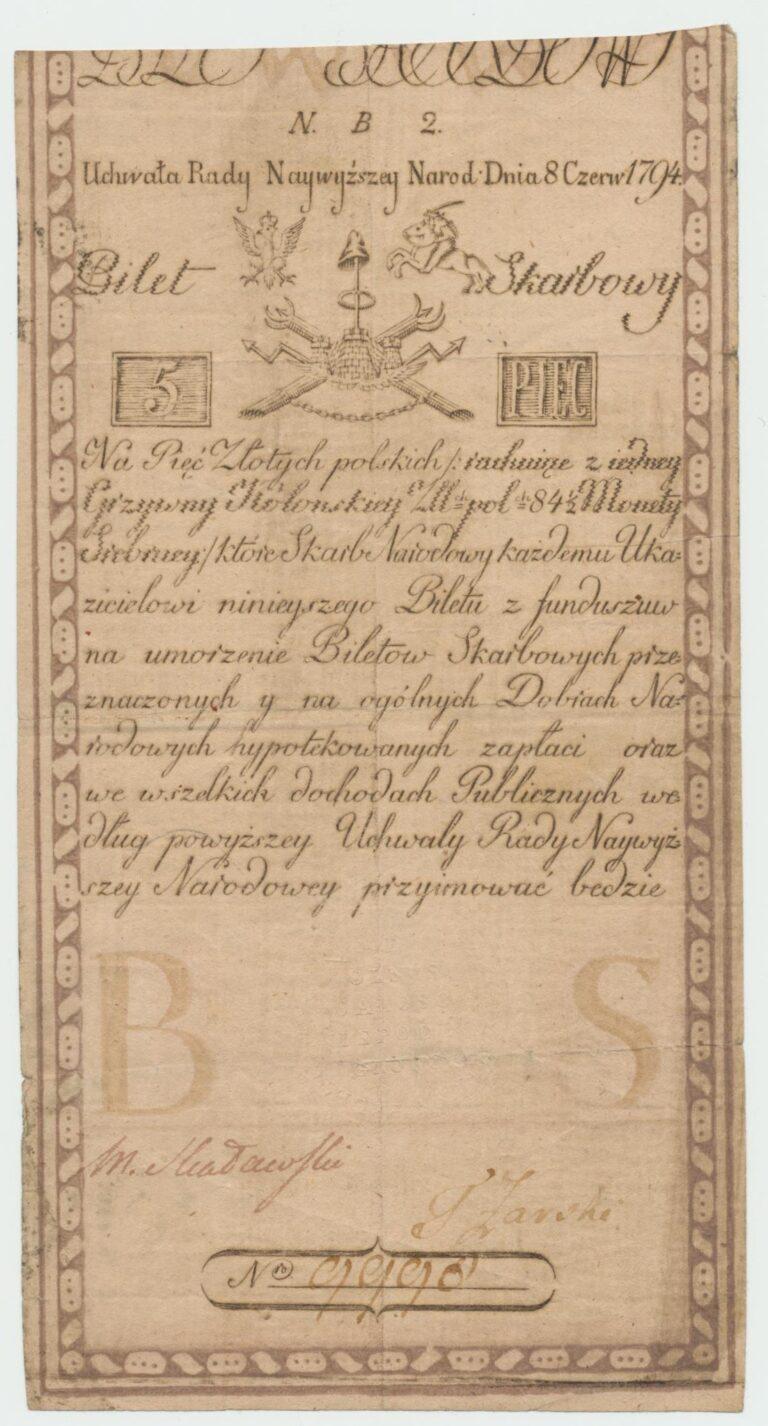 N. B 2.
Uchwała Rady Naywyższey Narod. Dnia 8 Czerw 1794.
Bilet Skarbowy
5 PIĘĆ
Na Pięć Złotych polskich /: rachuiąc z iedney
Grzywny Kolonskiey Zll: pol: 84½ Monety
Srebrney:/ ktore Skarb Narodowy każdemu Uka-
zicielowi ninieyszego Biletu z funduszuw
na umorzenie Biletow Skarbowych prze-
znaczonych y na ogólnych Dobrach Na-
rodowych hypotekowanych zapłaci oraz
we wszelkich dochodach Publicznych we-
dług powyższey Uchwały Rady Naywyż-
szey Narodowey przyimować będzie
B S
M. Skadawski
Zarski
No 9998